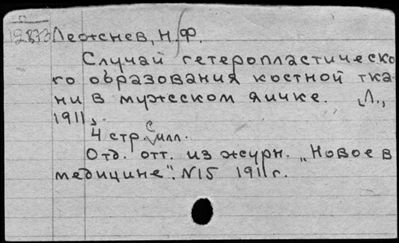 12833 Лежнев, Н.Ф.
Случай гетеропластическо
го образования костной тка
ни в мужском яичке. Л.,
1911,
4 стр. с илл.
Отд. отт. из журн. „Новое в
медицине". N15 1911 г.